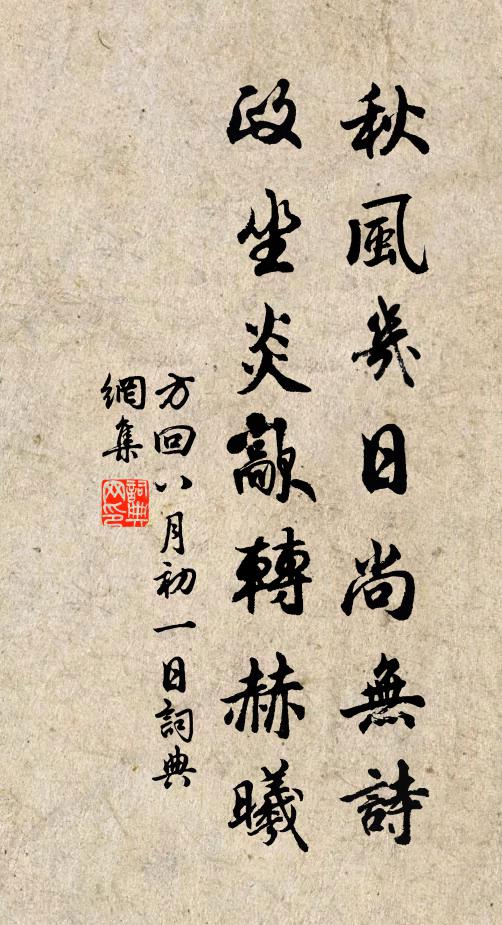 秋風幾日尚無詩
政坐炎歊轉赫曦
方回八月初一日詞典
網集
詞典网印